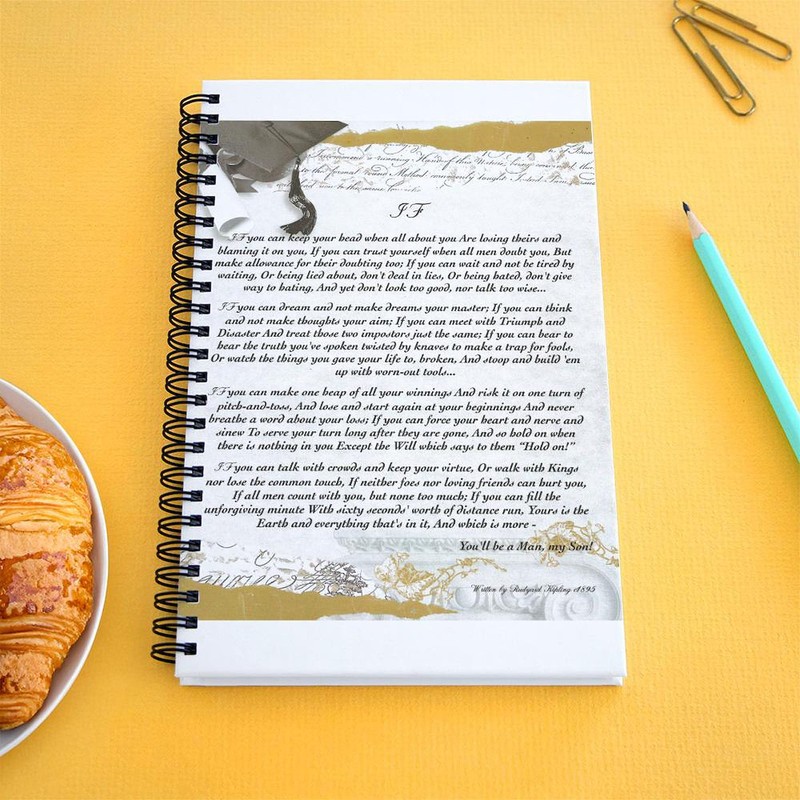 I recommend a running Hand of this Writer, being convinced, the
to the formal round Method commonly taught. I
IF
IF you can keep your head when all about you Are losing theirs and
blaming it on you, If you can trust yourself when all men doubt you, But
make allowance for their doubting too; If you can wait and not be tired by
waiting, Or being lied about, don't deal in lies, Or being hated, don't give
way to hating, And yet don't look too good, nor talk too wise...
IF you can dream and not make dreams your master; If you can think
and not make thoughts your aim; If you can meet with Triumph and
Disaster And treat those two impostors just the same; If you can bear to
hear the truth you've spoken twisted by knaves to make a trap for fools,
Or watch the things you gave your life to, broken, And stoop and build 'em
up with worn-out tools...
IF you can make one heap of all your winnings And risk it on one turn of
pitch-and-toss, And lose and start again at your beginnings And never
breathe a word about your loss; If you can force your heart and nerve and
sinew To serve your turn long after they are gone, And so hold on when
there is nothing in you Except the Will which says to them “Hold on!”
IF you can talk with crowds and keep your virtue, Or walk with Kings
nor lose the common touch, If neither foes nor loving friends can hurt you,
If all men count with you, but none too much; If you can fill the
unforgiving minute With sixty seconds' worth of distance run, Yours is the
Earth and everything that's in it, And which is more -
You'll be a Man, my Son!
Written by Rudyard Kipling c1895